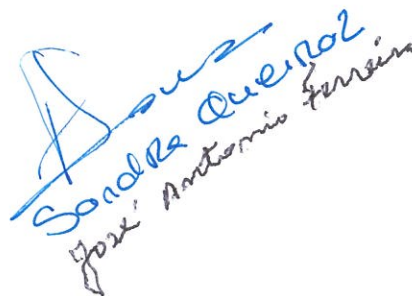 Sandra Queiroz
José Antonio Ferreira